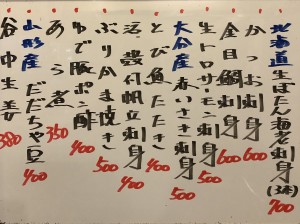 北海道生ぼたん海老刺身(3本) 700
かつお刺身 600
金目鯛刺身 600
生トロサーモン刺身 500
大分産赤いさき刺身 500
とび魚たたき 400
活殻付帆立刺身 400
ぶりかま焼き 500
ゆで豚ポン酢 400
あら煮 350
山形産だだちゃ豆 400
谷中生姜 380